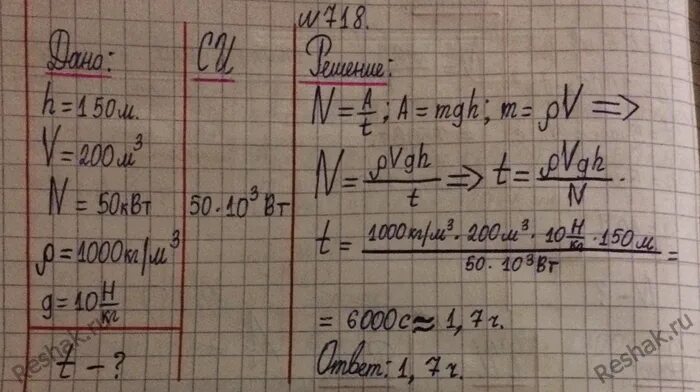 №718.
Дано:
h = 150 м.
V = 200 м³
N = 50 кВт
ρ = 1000 кг/м³
g = 10 Н/кг
t - ?
СИ
50 · 10³ Вт
Решение:
N = A/t ; A = mgh ; m = ρV =>
N = ρVgh/t => t = ρVgh/N.
t = 1000 кг/м³ · 200 м³ · 10 Н/кг · 150 м / 50 · 10³ Вт =
= 6000 с ≈ 1,7 ч.
Ответ: 1,7 ч.
Reshak.ru
Reshak.ru